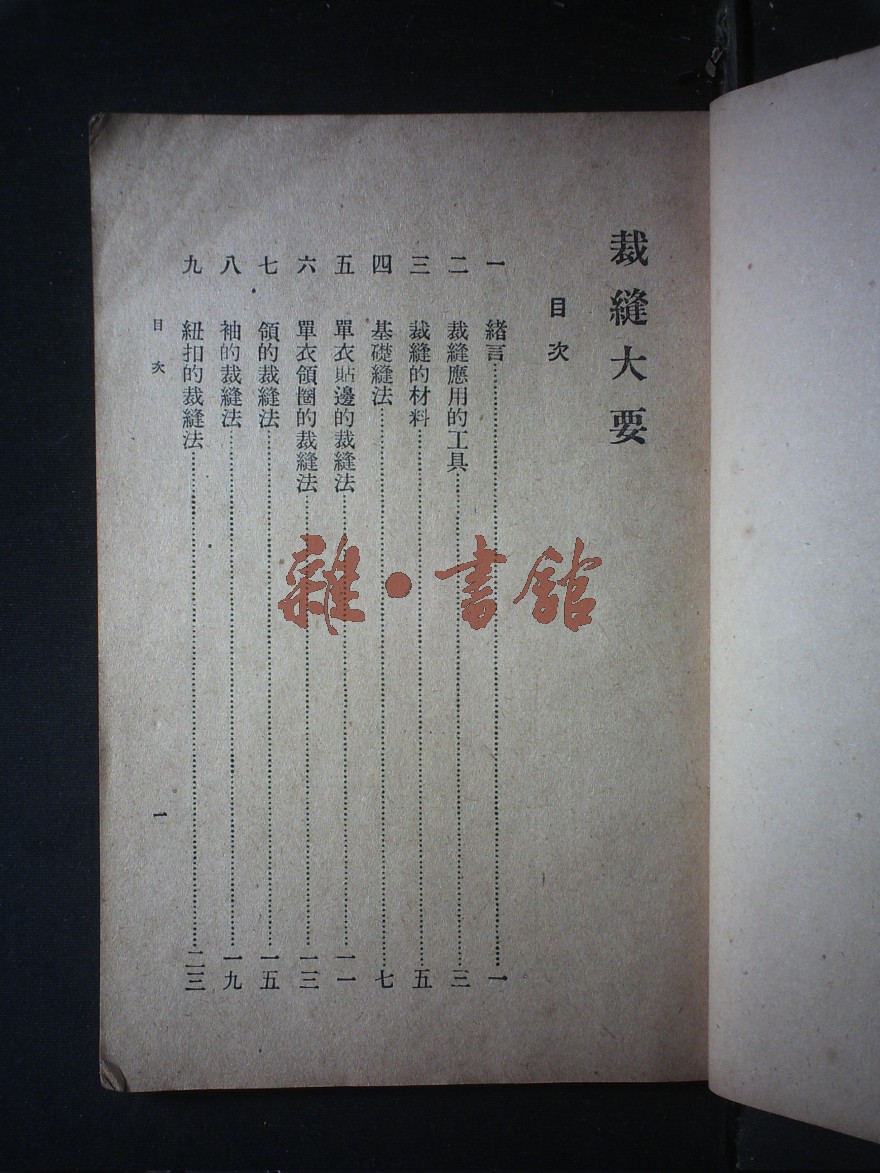 裁縫大要
目次
一 緒言……一
二 裁縫應用的工具……三
三 裁縫的材料……五
四 基礎縫法……七
五 單衣貼邊的裁縫法……一一
六 單衣領圈的裁縫法……一三
七 領的裁縫法……一五
八 袖的裁縫法……一九
九 紐扣的裁縫法……二三
目次 一
雜·書館